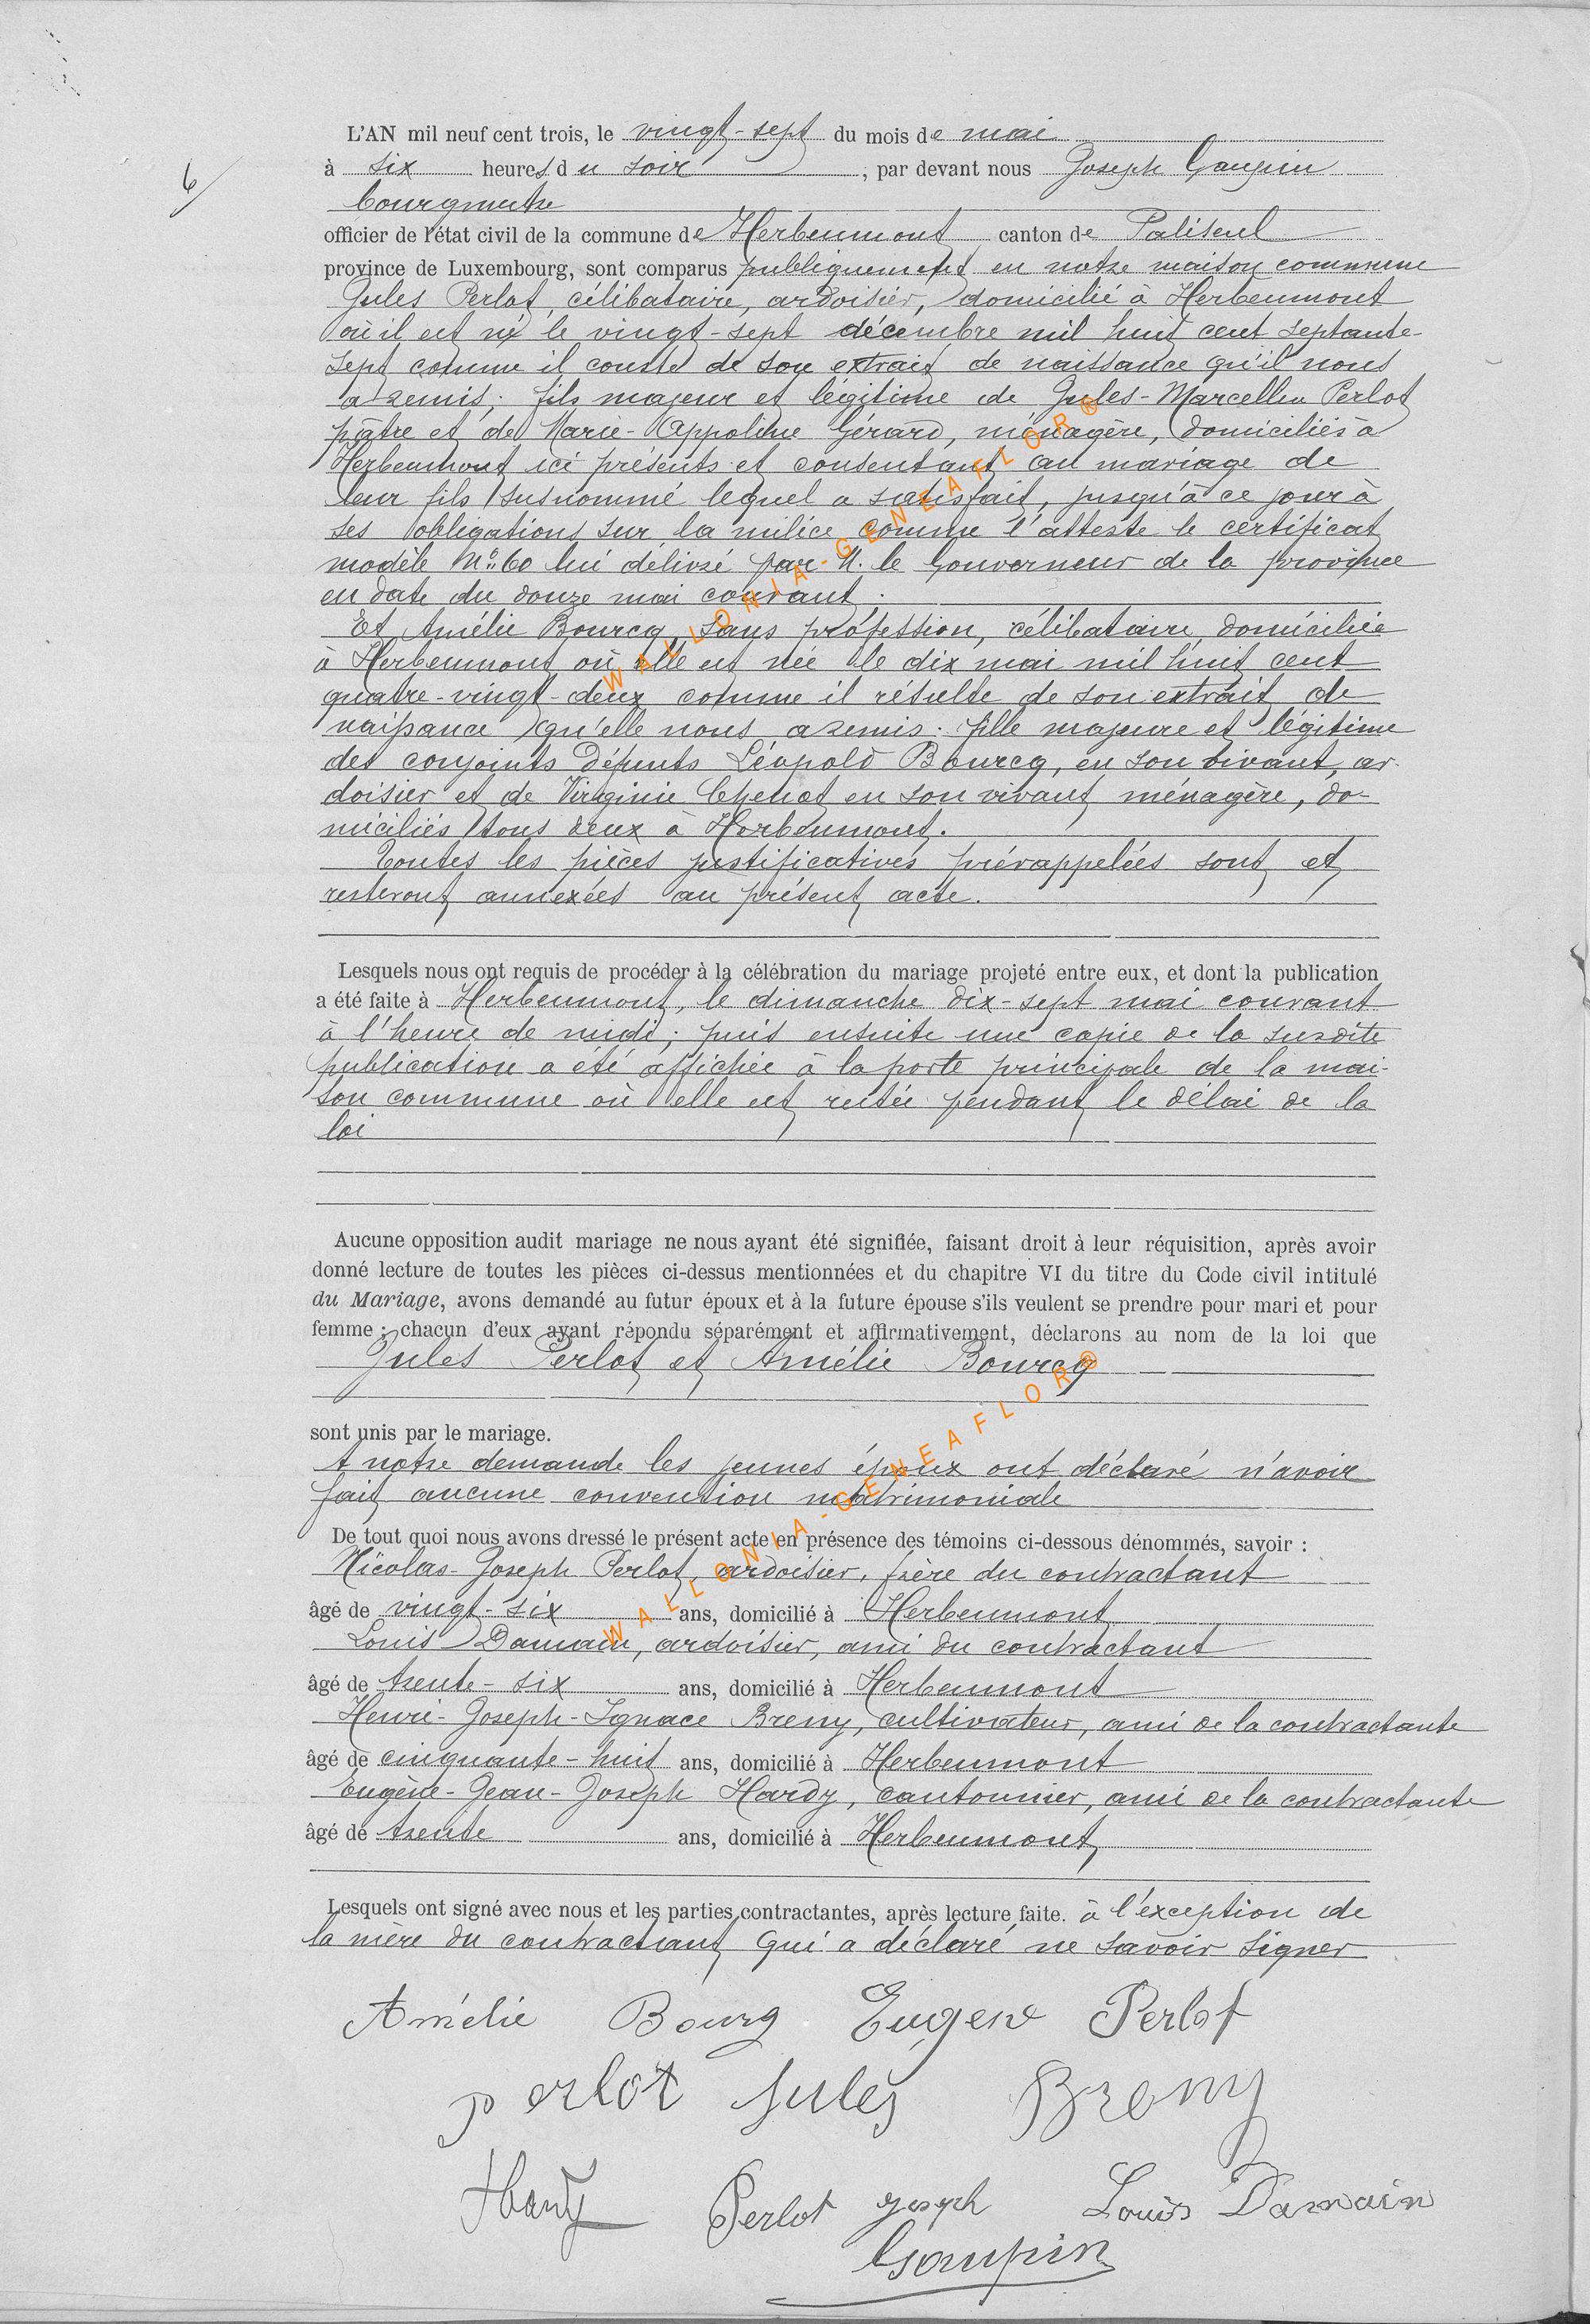 L'AN mil neuf cent trois, le vingt-sept du mois de mai
6/
à six heures du soir, par devant nous Joseph Gaupin
bourgmestre
officier de l'état civil de la commune de Herbeumont canton de Paliseul
province de Luxembourg, sont comparus publiquement en notre maison commune
Jules Perlot, célibataire, ardoisier, domicilié à Herbeumont
où il est né le vingt-sept décembre mil huit cent septante-
sept comme il conste de son extrait de naissance qu'il nous
a remis; fils majeur et légitime de Jules-Marcellin Perlot
pâtre et de Marie-Appoline Gérard, ménagère, domiciliés à
Herbeumont ici présents et consentant au mariage de
leur fils susnommé lequel a satisfait, jusqu'à ce jour à
ses obligations sur la milice comme l'atteste le certificat
modèle N° 60 lui délivré par M. le Gouverneur de la province
en date du douze mai courant.
Et Amélie Bourcq, sans profession, célibataire, domiciliée
à Herbeumont où elle est née le dix mai mil huit cent
quatre-vingt-deux comme il résulte de son extrait de
naissance qu'elle nous a remis. fille majeure et légitime
des conjoints défunts Léopold Bourcq, en son vivant, ar-
doisier et de Virginie Chenot en son vivant ménagère, do-
miciliés tous deux à Herbeumont.
Toutes les pièces justificatives prérappelées sont et
resteront annexées au présent acte.
Lesquels nous ont requis de procéder à la célébration du mariage projeté entre eux, et dont la publication
a été faite à Herbeumont, le dimanche dix-sept mai courant
à l'heure de midi; puis ensuite une copie de la susdite
publication a été affichée à la porte principale de la mai-
son commune où elle est restée pendant le délai de la
loi
Aucune opposition audit mariage ne nous ayant été signifiée, faisant droit à leur réquisition, après avoir
donné lecture de toutes les pièces ci-dessus mentionnées et du chapitre VI du titre du Code civil intitulé
du Mariage, avons demandé au futur époux et à la future épouse s'ils veulent se prendre pour mari et pour
femme; chacun d'eux ayant répondu séparément et affirmativement, déclarons au nom de la loi que
Jules Perlot et Amélie Bourcq
sont unis par le mariage.
A notre demande les jeunes époux ont déclaré n'avoir
fait aucune convention matrimoniale
De tout quoi nous avons dressé le présent acte en présence des témoins ci-dessous dénommés, savoir :
Nicolas-Joseph Perlot, ardoisier, frère du contractant
âgé de vingt-six ans, domicilié à Herbeumont
Louis Damain, ardoisier, ami du contractant
âgé de trente-six ans, domicilié à Herbeumont
Henri-Joseph-Ignace Breny, cultivateur, ami de la contractante
âgé de cinquante-huit ans, domicilié à Herbeumont
Eugène-Jean-Joseph Hardy, cantonnier, ami de la contractante
âgé de trente ans, domicilié à Herbeumont
Lesquels ont signé avec nous et les parties contractantes, après lecture faite. à l'exception de
la mère du contractant qui a déclaré ne savoir signer
Amélie Bourg Eugene Perlot
perlot Jules Breny
Hardy Perlot joseph Louis Damain
Gaupin
WALLONIA-GENEAFLOR®
WALLONIA-GENEAFLOR®